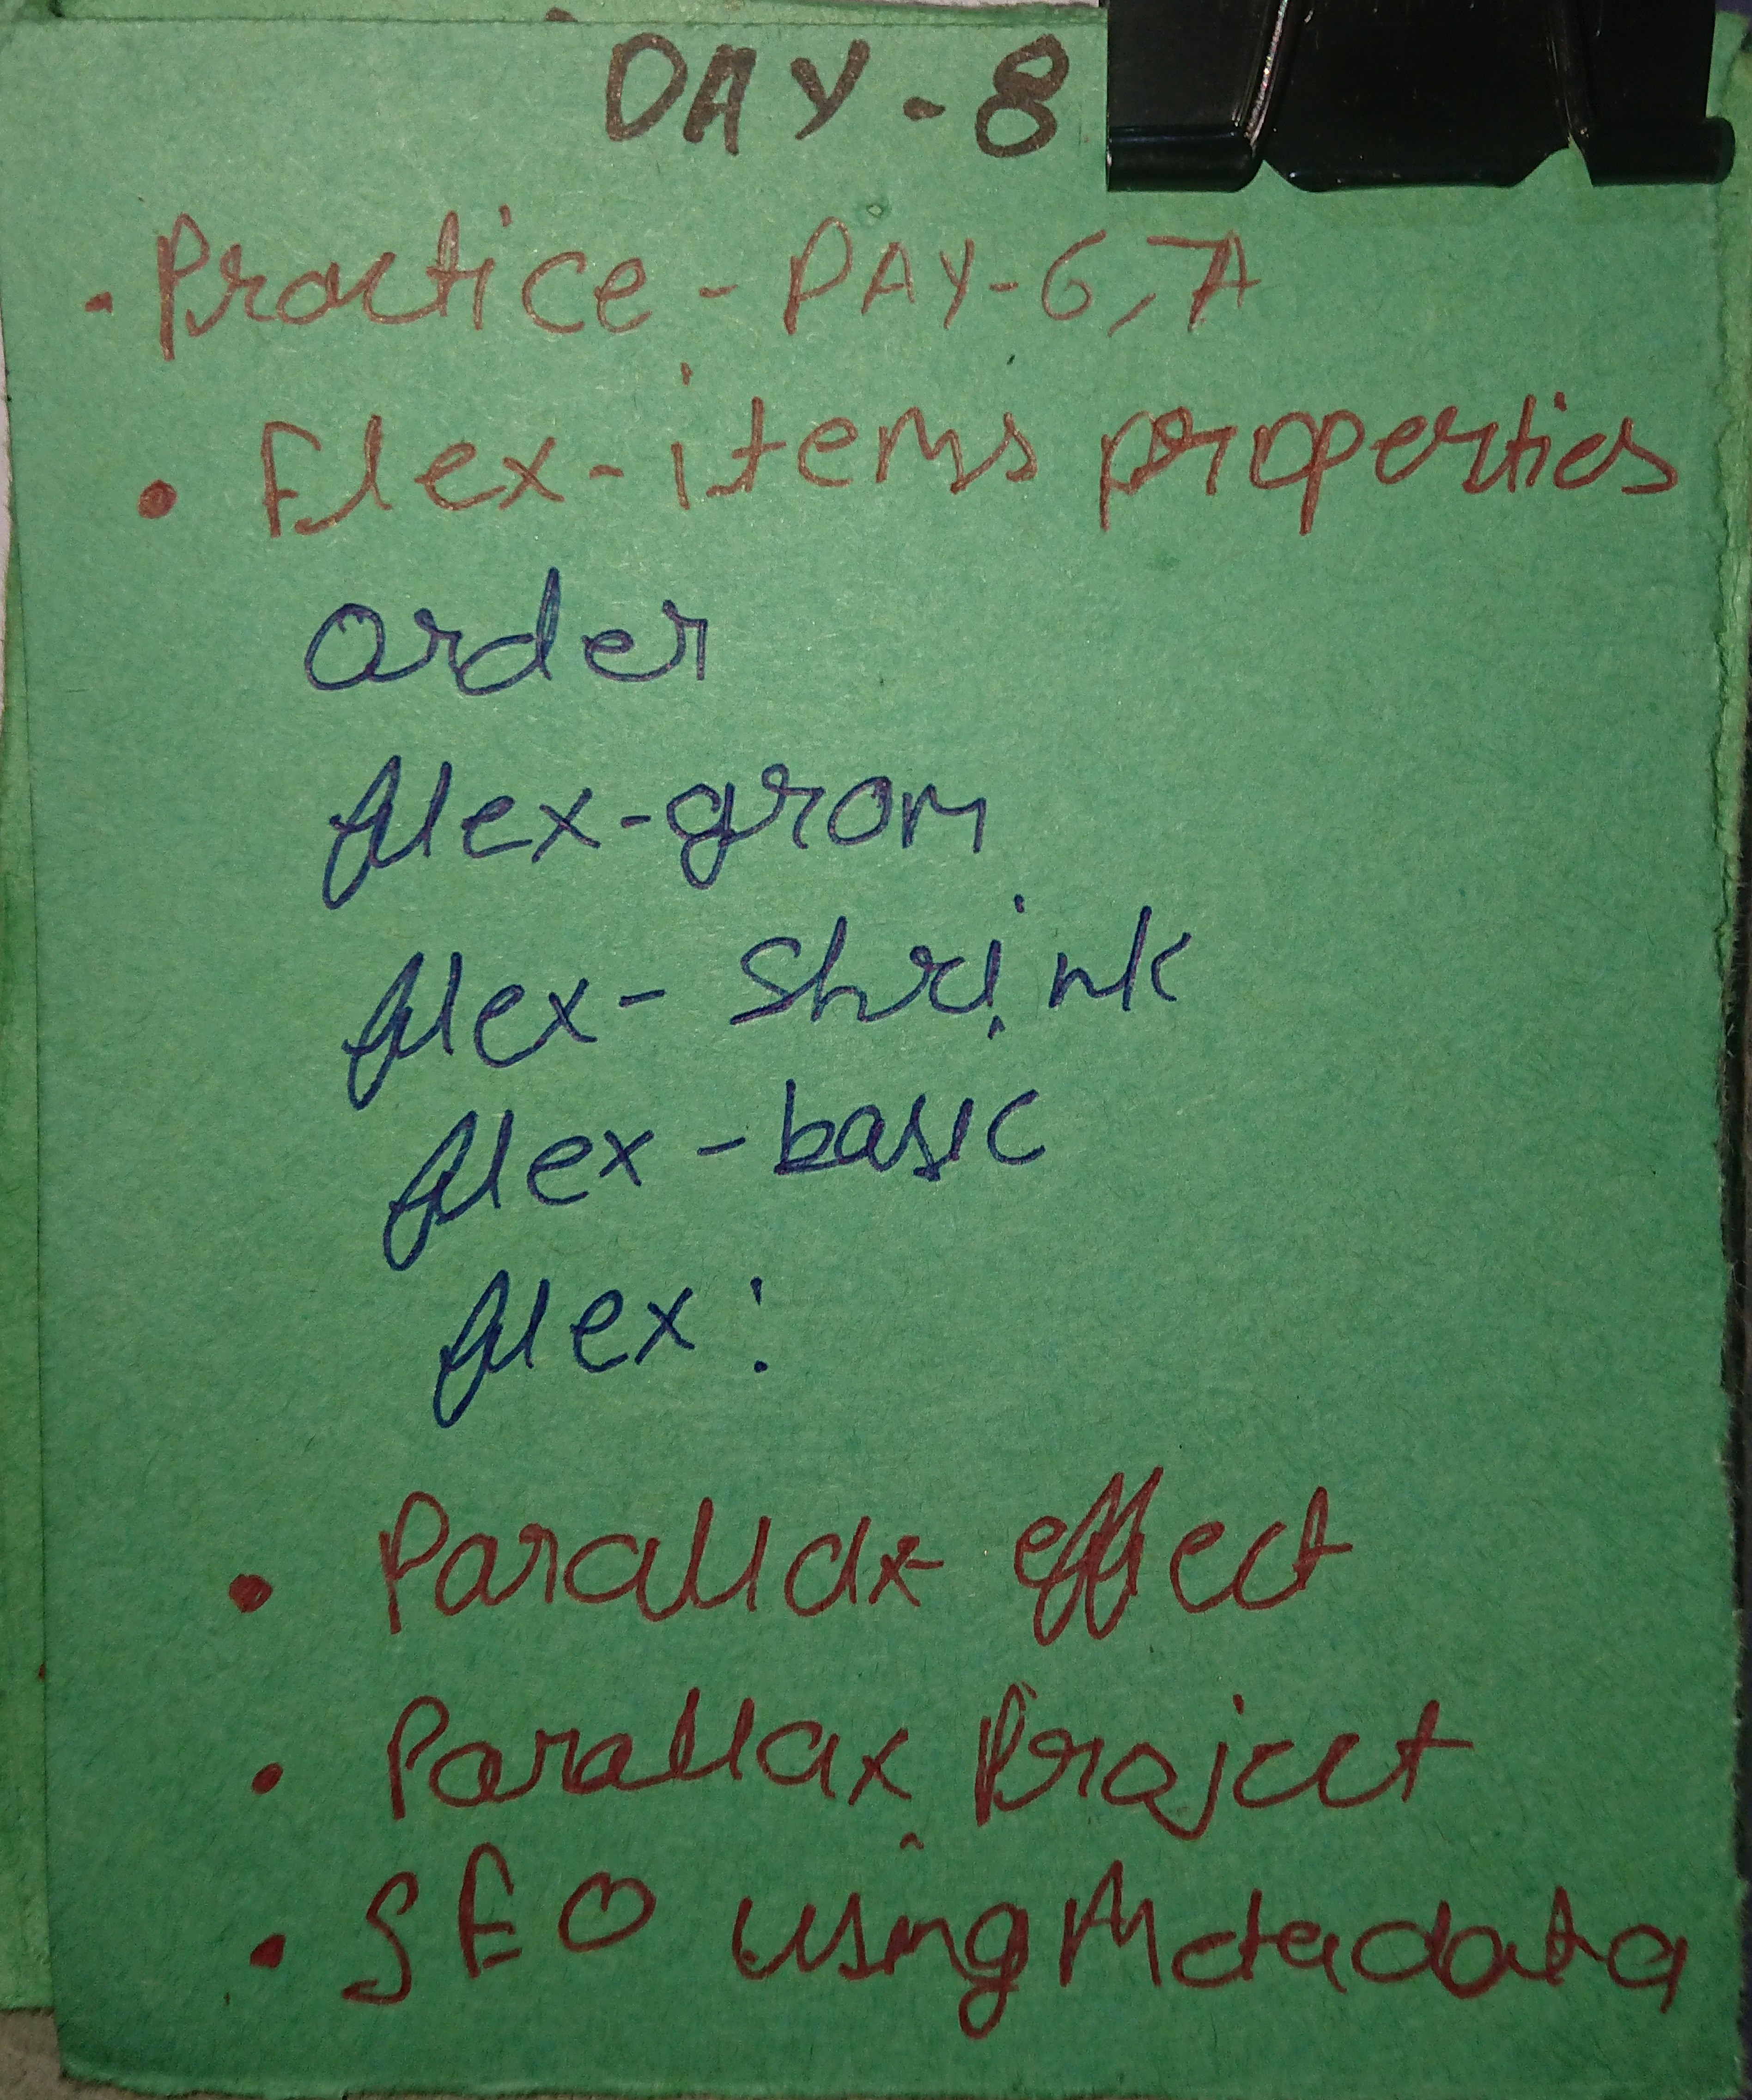 DAY - 8
. Practice - DAY-6,7
. Flex-items properties
order
flex-grom
flex- Shrink
flex - basic
flex :
. Parallax effect
. Parallax Project
. SEO using Metadata